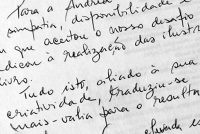 Para a Andreia
simpatia, disponibilidade e
que aceitou o nosso desafio
dicou à realização das ilustr
livro.
Tudo isto, aliado à sua
criatividade, traduziu-se
mais-valia para o resulta